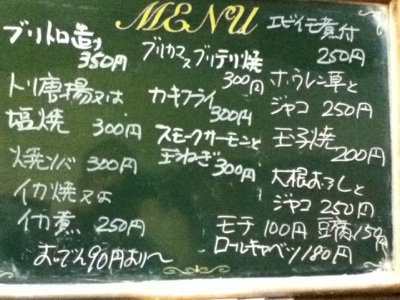 MENU
ブリトロ造り
350円
トリ唐揚又は
塩焼 300円
焼ソバ 300円
イカ焼又は
イカ煮 250円
おでん90円より〜
ブリカマ又ブリテリ焼
300円
カキフライ
300円
スモークサーモンと
玉ねぎ300円
エビイモ煮付
250円
ホウレン草と
ジャコ 250円
玉子焼
200円
大根おろしと
ジャコ 250円
モチ 100円 豆腐150円
ロールキャベツ180円